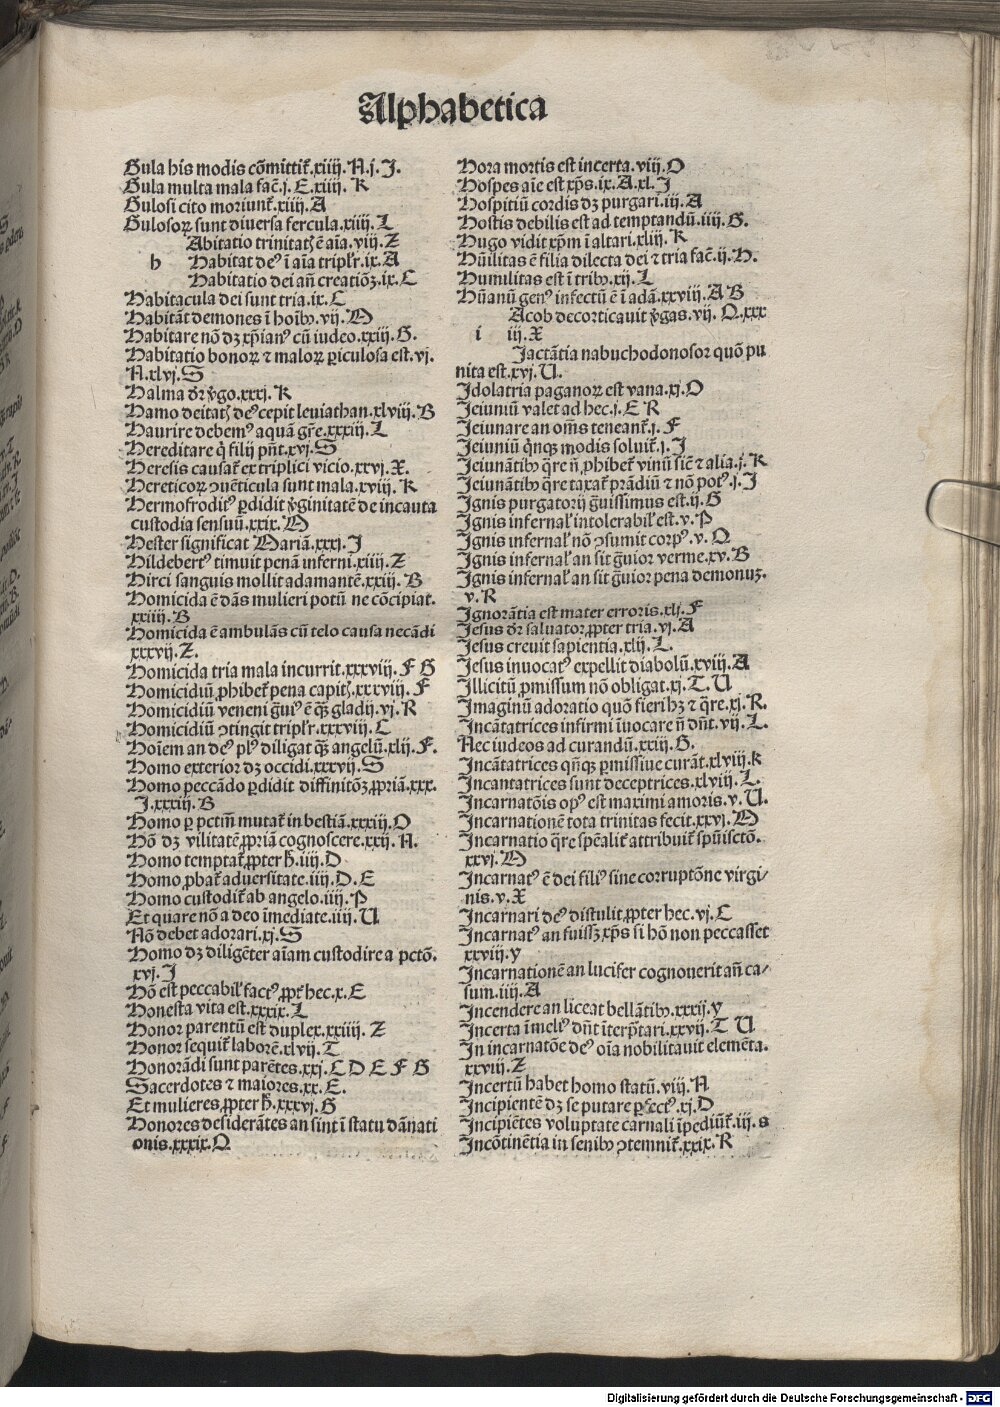 Alphabetica
Gula his modis cõmittit᷑.xiiij.N.j.J.
Gula multa mala fac̃.j.E.xiiij.K
Gulosi cito moriunt᷑.xiiij.A
Gulosoꝝ sunt diuersa fercula.xiiij.L
Abitatio trinitatꝭ ẽ aĩa.viij.Z
h Habitat deꝰ ĩ aĩa triplr̃.ix.A
Habitatio dei añ creatiõꝫ.ix.C
Habitacula dei sunt tria.ix.C
Habitãt demones ĩ hoĩbꝰ.vij.M
Habitare nõ dꝫ xp̃ianꝰ cũ iudeo.xxiij.G.
Habitatio bonoꝝ ⁊ maloꝝ ꝑiculosa est.vj.
N.xlvj.S
Halma dr̃ ṽgo.xxxj.K
Hamo deitatꝭ deꝰ cepit leuiathan.xlviij.B
Haurire debemꝰ aquã gr̃e.xxxiij.L
Hereditare q̃ filij pñt.xvj.S
Heresis causat᷑ ex triplici vicio.xxvj.X.
Hereticoꝝ ꝯuẽticula sunt mala.xviij.K
Hermofroditꝰ ꝑdidit ṽginitatẽ de incauta
custodia sensuũ.xxix.M
Hester significat Mariã.xxxj.J
Hildebertꝰ timuit penã inferni.xiiij.Z
Hirci sanguis mollit adamantẽ.xxiij.B
Homicida ẽ dãs mulieri potũ ne cõcipiat.
xxiij.B
Homicida ẽ ambulãs cũ telo causa necãdi
xxxvij.Z.
Homicida tria mala incurrit.xxxviij.F G
Homicidiũ ꝓhibet᷑ pena capitꝭ.xxxviij.F
Homicidiũ veneni g̃uiꝰ ẽ qꝫ̃ gladij.vj.R
Homicidiũ ꝯtingit triplr̃.xxxviij.C
Hoĩem an deꝰ plꝰ diligat qꝫ̃ angelũ.xlij.F.
Homo exterior dꝫ occidi.xxxvij.S
Homo peccãdo ꝑdidit diffinitõꝫ ꝓpriã.xxx.
J.xxxij.B
Homo ꝑ pctm̃ mutat᷑ in bestiã.xxxiij.O
Hõ dꝫ vilitatẽ ꝓpriã cognoscere.xxij.N.
Homo temptat᷑ ꝓpter h̃.iiij.D
Homo ꝓbat᷑ aduersitate.iiij.D.E
Homo custodit᷑ ab angelo.iiij.P
Et quare nõ a deo ĩmediate.iiij.U
Nõ debet adorari.xj.S
Homo dꝫ diligẽter aĩam custodire a pctõ.
xvj.J
Hõ est peccabil᷑ factꝰ ꝓpt᷑ hec.x.E
Honesta vita est.xxxix.L
Honor parentũ est duplex.xxiiij.Z
Honor sequit᷑ laborẽ.xlvij.T
Honorãdi sunt parẽtes.xxj.C D E F G
Sacerdotes ⁊ maiores.xx.E.
Et mulieres ꝓpter h̃.xxxvj.G
Honores desiderãtes an sint ĩ statu dãnati
onis.xxxix.Q
Hora mortis est incerta.viij.O
Hospes aĩe est xp̃s.ix.A.xl.J
Hospitiũ cordis dꝫ purgari.iij.A
Hostis debilis est ad temptandũ.iiij.G.
Hugo vidit xp̃m ĩ altari.xliij.K
Hũilitas ẽ filia dilecta dei ⁊ tria fac̃.ij.H.
Humilitas est ĩ tribꝰ.xij.L
Hũanũ genꝰ infectũ ẽ ĩ adã.xxviij.A B
Acob decorticauit ṽgas.vij.Q.xxx
i iij.X
Jactãtia nabuchodonosor quõ pu
nita est.xvj.U.
Idolatria paganoꝝ est vana.xj.O
Jeiuniũ valet ad hec.j.E R
Jeiunare an om̃s teneant᷑.j.F
Jeiuniũ q̃nqꝫ modis soluit᷑.j.J
Jeiunãtibꝰ q̃re ñ ꝓhibet᷑ vinũ sic̃ ⁊ alia.j.K
Jeiunãtibꝰ q̃re taxat᷑ prãdiũ ⁊ nõ potꝰ.j.J
Ignis purgatorij g̃uissimus est.ij.G
Ignis infernal᷑ intolerabil᷑ est.v.P
Ignis infernal᷑ nõ ꝯsumit corpꝰ.v.Q
Ignis infernal᷑ an sit g̃uior verme.xv.B
Ignis infernal᷑ an sit g̃uior pena demonuꝫ.
v.R
Ignorãtia est mater erroris.xlj.F
Jesus dr̃ saluator ꝓpter tria.vj.A
Jesus creuit sapientia.xlij.L.
Jesus inuocatꝰ expellit diabolũ.xviij.A
Illicitũ ꝓmissum nõ obligat.xj.T.U
Imaginũ adoratio quõ fieri hꝫ ⁊ q̃re.xj.R.
Incãtatrices infirmi ĩuocare ñ dñt.vij.L.
Nec iudeos ad curandũ.xxiij.G.
Incãtatrices qñqꝫ ꝑmissiue curãt.xlviij.k
Incantatrices sunt deceptrices.xlviij.L.
Incarnatõis opꝰ est maximi amoris.v.U.
Incarnationẽ tota trinitas fecit.xxvj.M
Incarnatio q̃re sp̃ealit᷑ attribuit᷑ spũisctõ.
xxvj.M
Incarnatꝰ ẽ dei filiꝰ sine corruptõne virgi⸗
nis.v.X
Incarnari deꝰ distulit ꝓpter hec.vj.C
Incarnatꝰ an fuissꝫ xp̃s si hõ non peccasset
xxviij.y
Incarnationẽ an lucifer cognouerit añ ca⸗
sum.iiij.A
Incendere an liceat bellãtibꝰ.xxxij.y
Incerta ĩ meliꝰ dñt ĩterp̃tari.xxvij.T U
In incarnatõe deꝰ oĩa nobilitauit elemẽta.
xxviij.Z
Incertũ habet homo statũ.viij.N
Incipientẽ dꝫ se putare ꝑfectꝰ.xj.D
Incipiẽtes voluptate carnali ĩpediũt᷑.iij.s
Incõtinẽtia in senibꝰ ꝯtemnit᷑.xxix.R
Digitalisierung gefördert durch die Deutsche Forschungsgemeinschaft - DFG